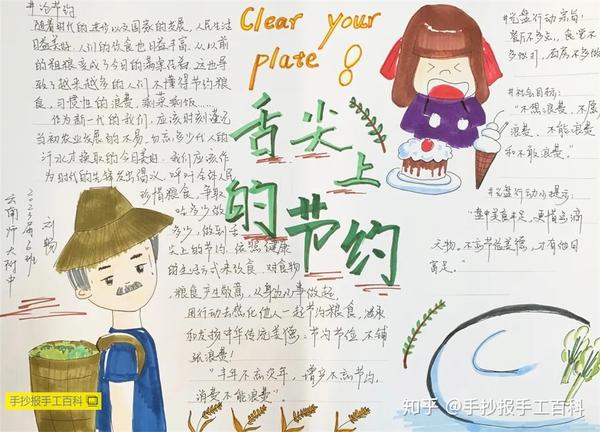 #论节约
随着时代的进步以及国家的发展,人民生活
日益美好,人们的饮食也日益丰富,从以前
的粗粮变成了今日的满桌花荤,这也导
致了越来越多的人们不懂得节约粮
食,习惯性的浪费,剩菜剩饭……
作为新一代的我们,应该时刻谨记
当初农业发展的不易,勿忘多少代人的
汗水才换取的今日美好,我们应该作
为时代的先锋发出倡议,呼吁全体人民
珍惜粮食,争取
吃多少做
多少,做到舌
尖上的节约,依照健康
的生活方式来饮食,对食物
粮食产生敬畏,从身边小事做起
用行动去感化他人一起节约粮食,继承
和发扬中华传统美德:节约节俭,不铺
张浪费!
"丰年不忘灾年,增产不忘节约,
消费不能浪费"。
Clear your
plate!
舌尖上
的节约
#光盘行动宗旨:
餐厅不多点,食堂不
多打,厨房不多做
#社会目标:
"不想浪费、不愿
浪费、不能浪费
和不敢浪费。"
#光盘行动小提示:
天物,不忘节俭美德,才有他日
富足。"
刘畅
2023届6班
云南师大附中
手抄报手工百科
知乎 @手抄报手工百科